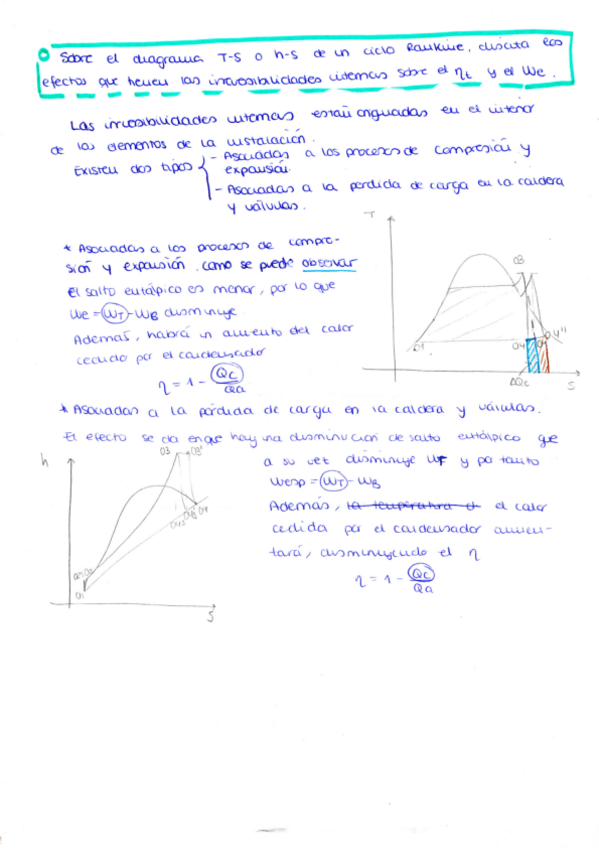 Sobre el diagrama T-S o h-s de un ciclo Rankine, discuta los
efectos que tienen las irreversibilidades internas sobre el ηt y el We.
Las irreversibilidades internas están englobadas en el interior
de los elementos de la instalación.
Existen dos tipos
- Asociadas a los procesos de compresión y
expansión.
- Asociadas a la perdida de carga en la caldera
y válvulas.
* Asociadas a los procesos de compre-
sión y expansión. como se puede observar
el salto entálpico es menor, por lo que
We = WT - WB disminuye.
Además, habrá un aumento del calor
cedido por el condensador
η = 1 - Qc/Qa
T
03
01
04
04''
ΔQc
S
* Asociadas a la pérdida de carga en la caldera y válvulas.
El efecto se da en que hay una disminución de salto entálpico que
a su vez disminuye WT y por tanto
Wesp = WT - WB
Además, la temperatura el el calor
cedida por el condensador aumen-
tará, disminuyendo el η
η = 1 - Qc/Qa
h
03
03'
01
04
S